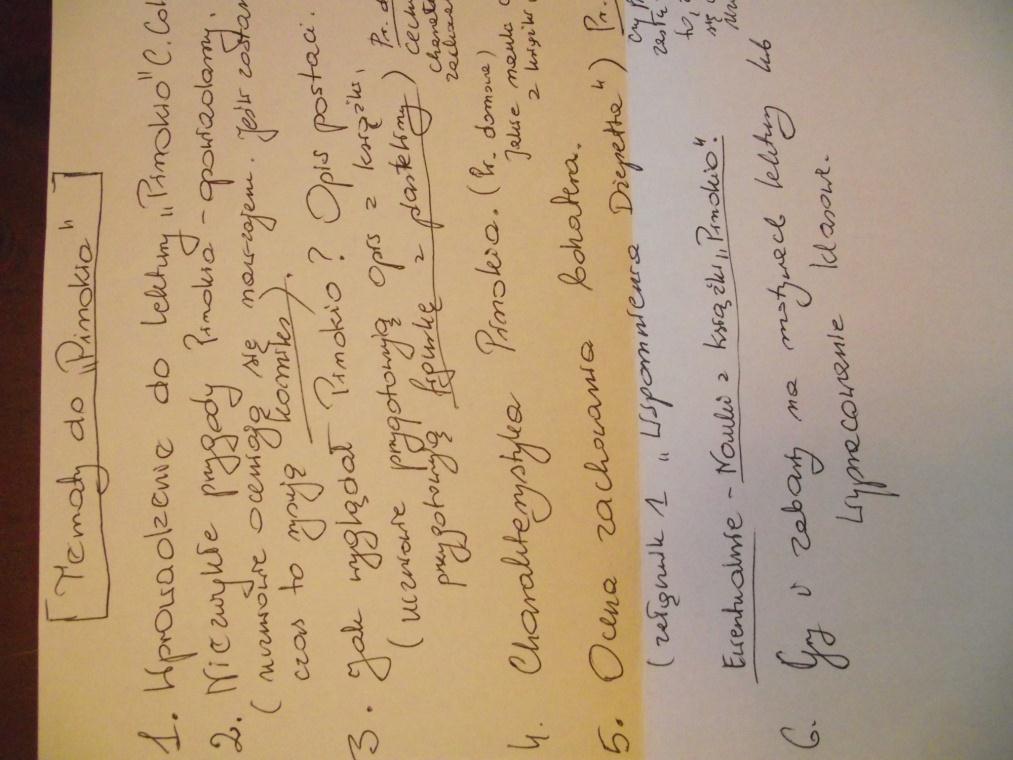 Tematy do "Pinokia"
1. Wprowadzenie do lektury „Pinokio" C. Col
2. Niezwykłe przygody Pinokia - opowiadamy.
(uczniowie oceniają się nawzajem. Jeśli zostan
czas to rysują komiks).
3. Jak wyglądał Pinokio? Opis postaci.
(uczniowie przygotowują opis z książki,
przygotowują figurkę z plasteliny)
Pr. d
cechy
zachow
4. Charakterystyka Pinokia. (Pr. domowa,
Jakie
z książki
5. Ocena zachowania bohatera.
(załącznik 1 „Wspomnienia Dżepetta") Pr.
to,
się
Ewentualnie - Nauki z książki „Pinokio".
6. Gry i zabawy na motywach lektury lub
Wypracowanie klasowe.